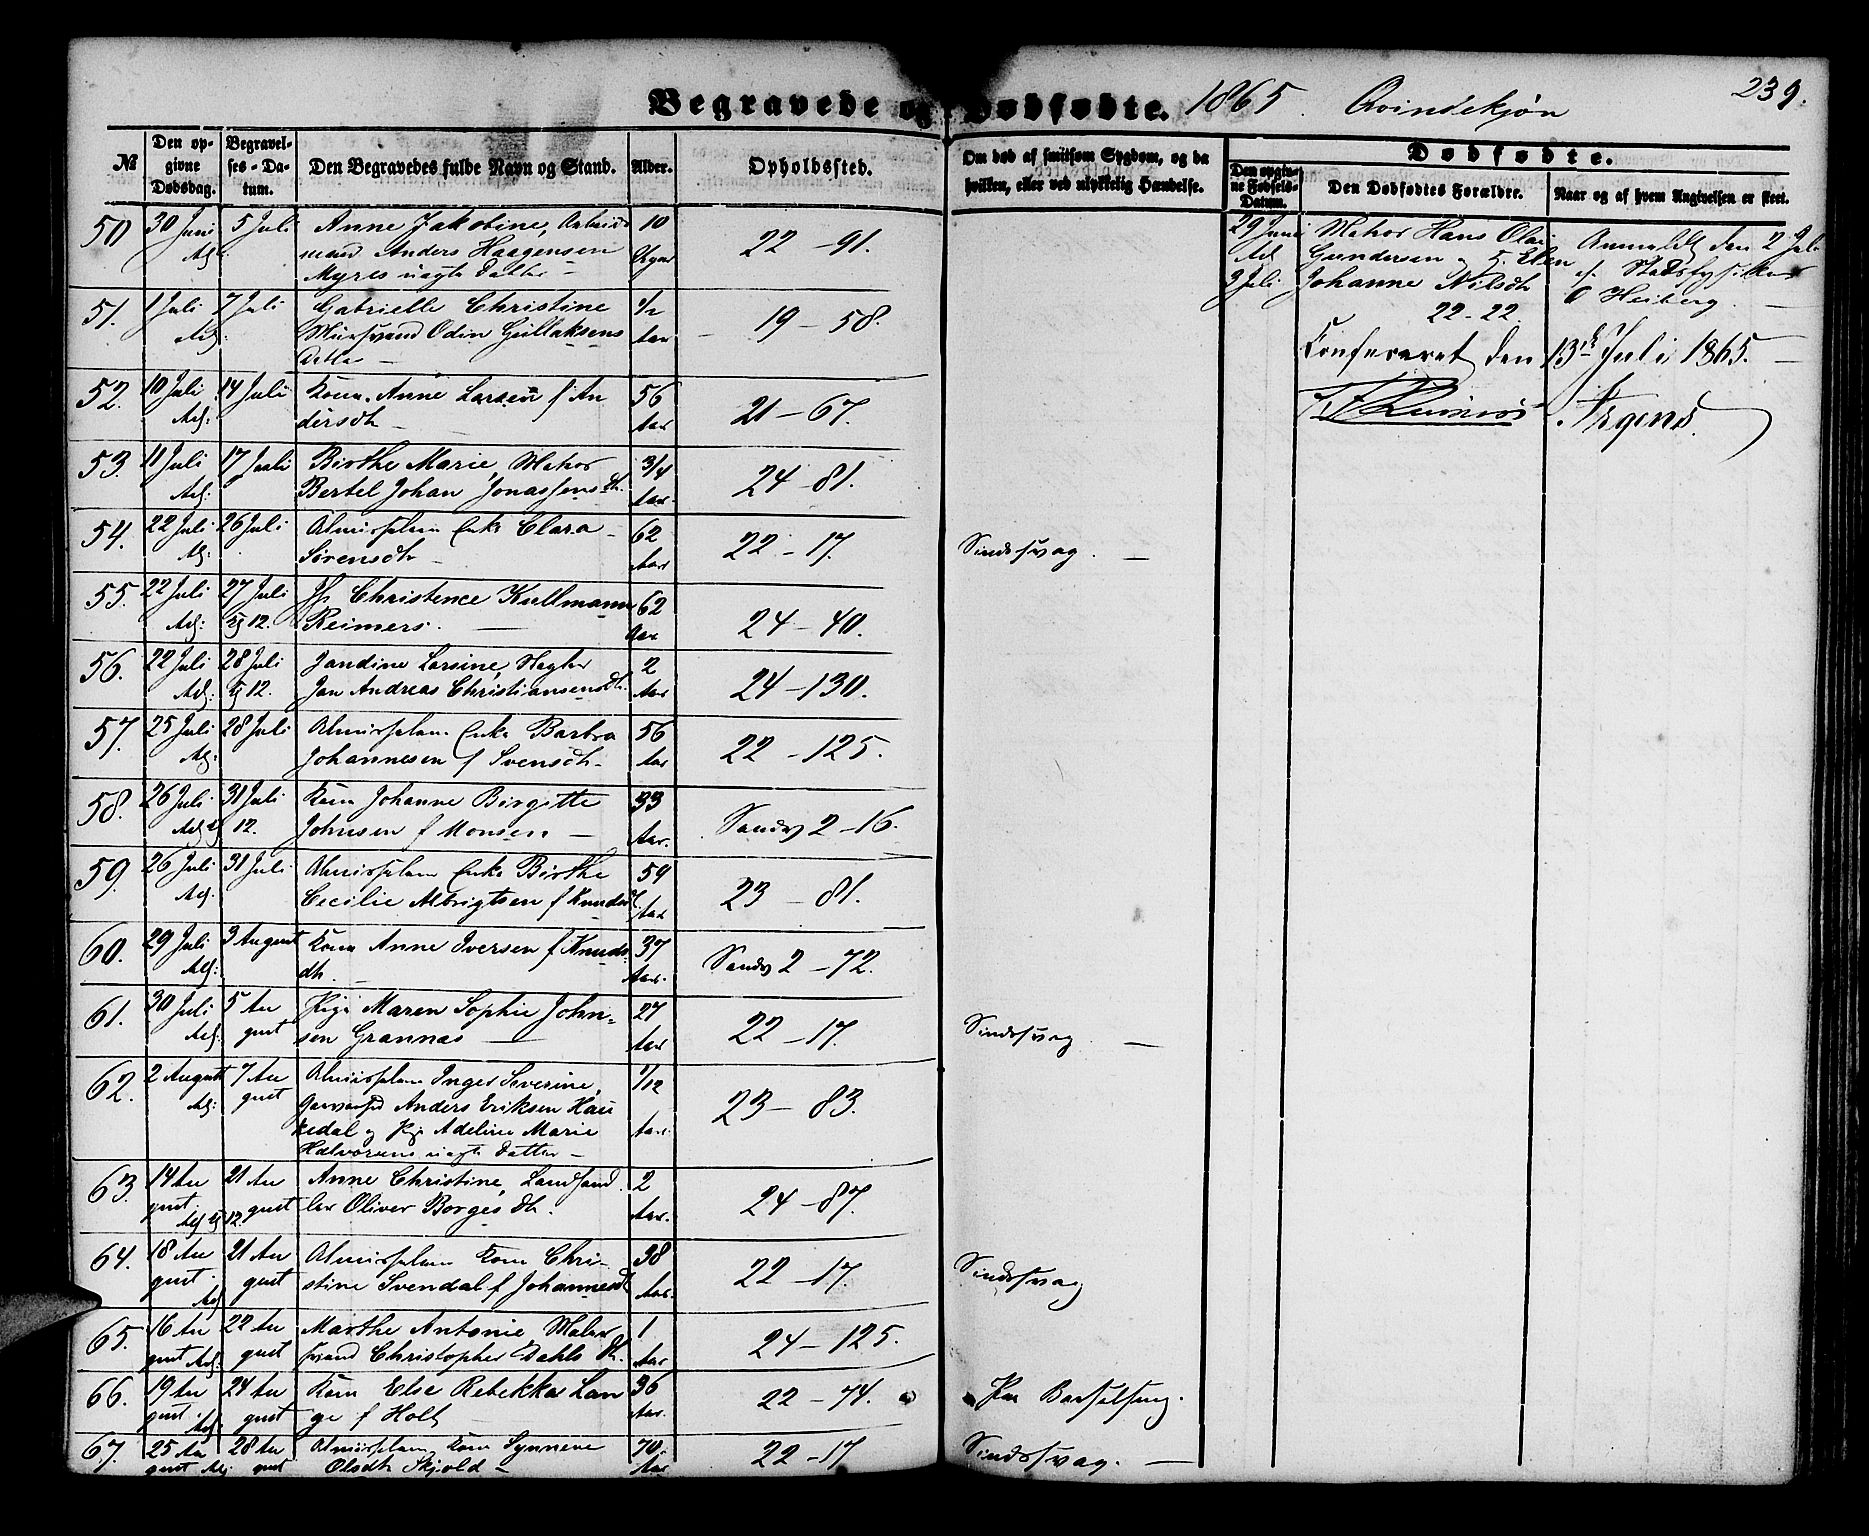 Begravede og Dødfødte. 1865. Qvindekjøn 239.
№
Den opgivne Dødsdag.
Begravelses-Datum.
Den Begravedes fulde Navn og Stand.
Alder.
Opholdssted.
Om død af smitsom Sygdom, og da
hvilken, eller ved ulykkelig Hændelse.
Dødfødte.
Den opgivne Fødsels-Datum.
Den Dødfødtes Forældre.
Naar og af hvem Angivelsen er skeet.
50. 30 Juni 5 Juli Anne Jakobine, Arbeids 10
mand Anders Haagensen 22 - 91.
Myres uægte Datter -
51. 1 Juli 7 Juli Gabrielle Christine 1/2
Muursvend Odin Gullaksens Aar 19 - 58.
Datter -
52. 10 Juli 14 Juli Kone Anne Larsen f An 56
dersdtr - Aar 21 - 67.
53. 11 Juli 17 Juli Birthe Marie, Matros 3/4
Bertel Johan Jonassens Dtr. Aar. 24 - 81.
54. 22 Juli 26 Juli Almisselem Enke Clara - 62
Sørensdtr - Aar 22 - 17. Sindssvag. -
55. 22 Juli 27 Juli Jfr Christence Kullmann 62
12. Reimers. - Aar 24 - 40.
56. 22 Juli 28 Juli Jandine Larsine, Vægter 2
12. Jan Andreas Christiansens Dtr. Aar 24 - 130.
57. 25 Juli 28 Juli Almisselem Enke Barbra 56
Johannesen f Svensdtr - Aar 22 - 125.
58. 26 Juli 31 Juli Kone Johanne Birgitte 33
12. Johnsen f Monsen - Aar. Sandv 2 - 16.
59. 26 Juli 31 Juli Almisselem Enke Birthe 59
Cecilie Albrigtsen f Knudsd Aar 23 - 81.
60. 29 Juli 3 August Kone Anne Iversen f Knuds 37
dtr. Aar. Sandv 2 - 72.
61. 30 Juli 5 Au Pige Maren Sophie John- 27
gust sen Grannas - Aar 22 - 17. Sindssvag -
62. 2 August 7 Au Almisselem Inger Severine, 1/12
gust Anders Eriksen Hau 23 - 83.
kedal og Pige Adeline Marie Aar.
Halvorsens uægte Datter -
63. 14 Au 21 Au Anne Christine, Landhand 2
gust 12. gust ler Oliver Borges Dtr. Aar. 24 - 87.
64. 18 Au 21 Au Almisselem Kone Chri- 38
gust. gust stine Svendal f Johannesdt Aar. 22 - 17. Sindssvag
65. 16 Au 22 Au Marthe Antonie Maler 1
gust gust svend Christopher Dahls Dtr. Aar 24 - 125.
66. 19 Au 24 Au Kone Else Rebekka Lan 36
gust. gust ge f Holt - Aar. 22 - 74. Paa Barselseng.
67. 25 Au 28 Au Almisselem Kone Synneve 70.
gust gust Olsdtr Skjold - Aar 22 - 17 Sindssvag. -
29 Juni Matros Hans Olai Anmeldt den 2 Juli
Gundersen og H. Elen af Stadsfysikus
3 Juli Johanne Nilsdtr Heiberg. -
22 - 22.
Confereret den 13de Juli 1865. -